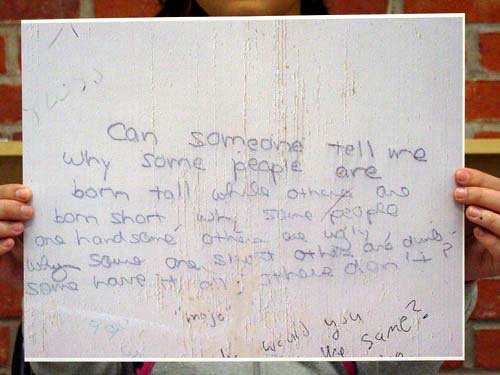 Can someone tell me
why some people are
born tall while others are
born short why some people
are handsome others are ugly
why some are smart others are dumb
some have it all others don't?
"mojo"
would you
the same?